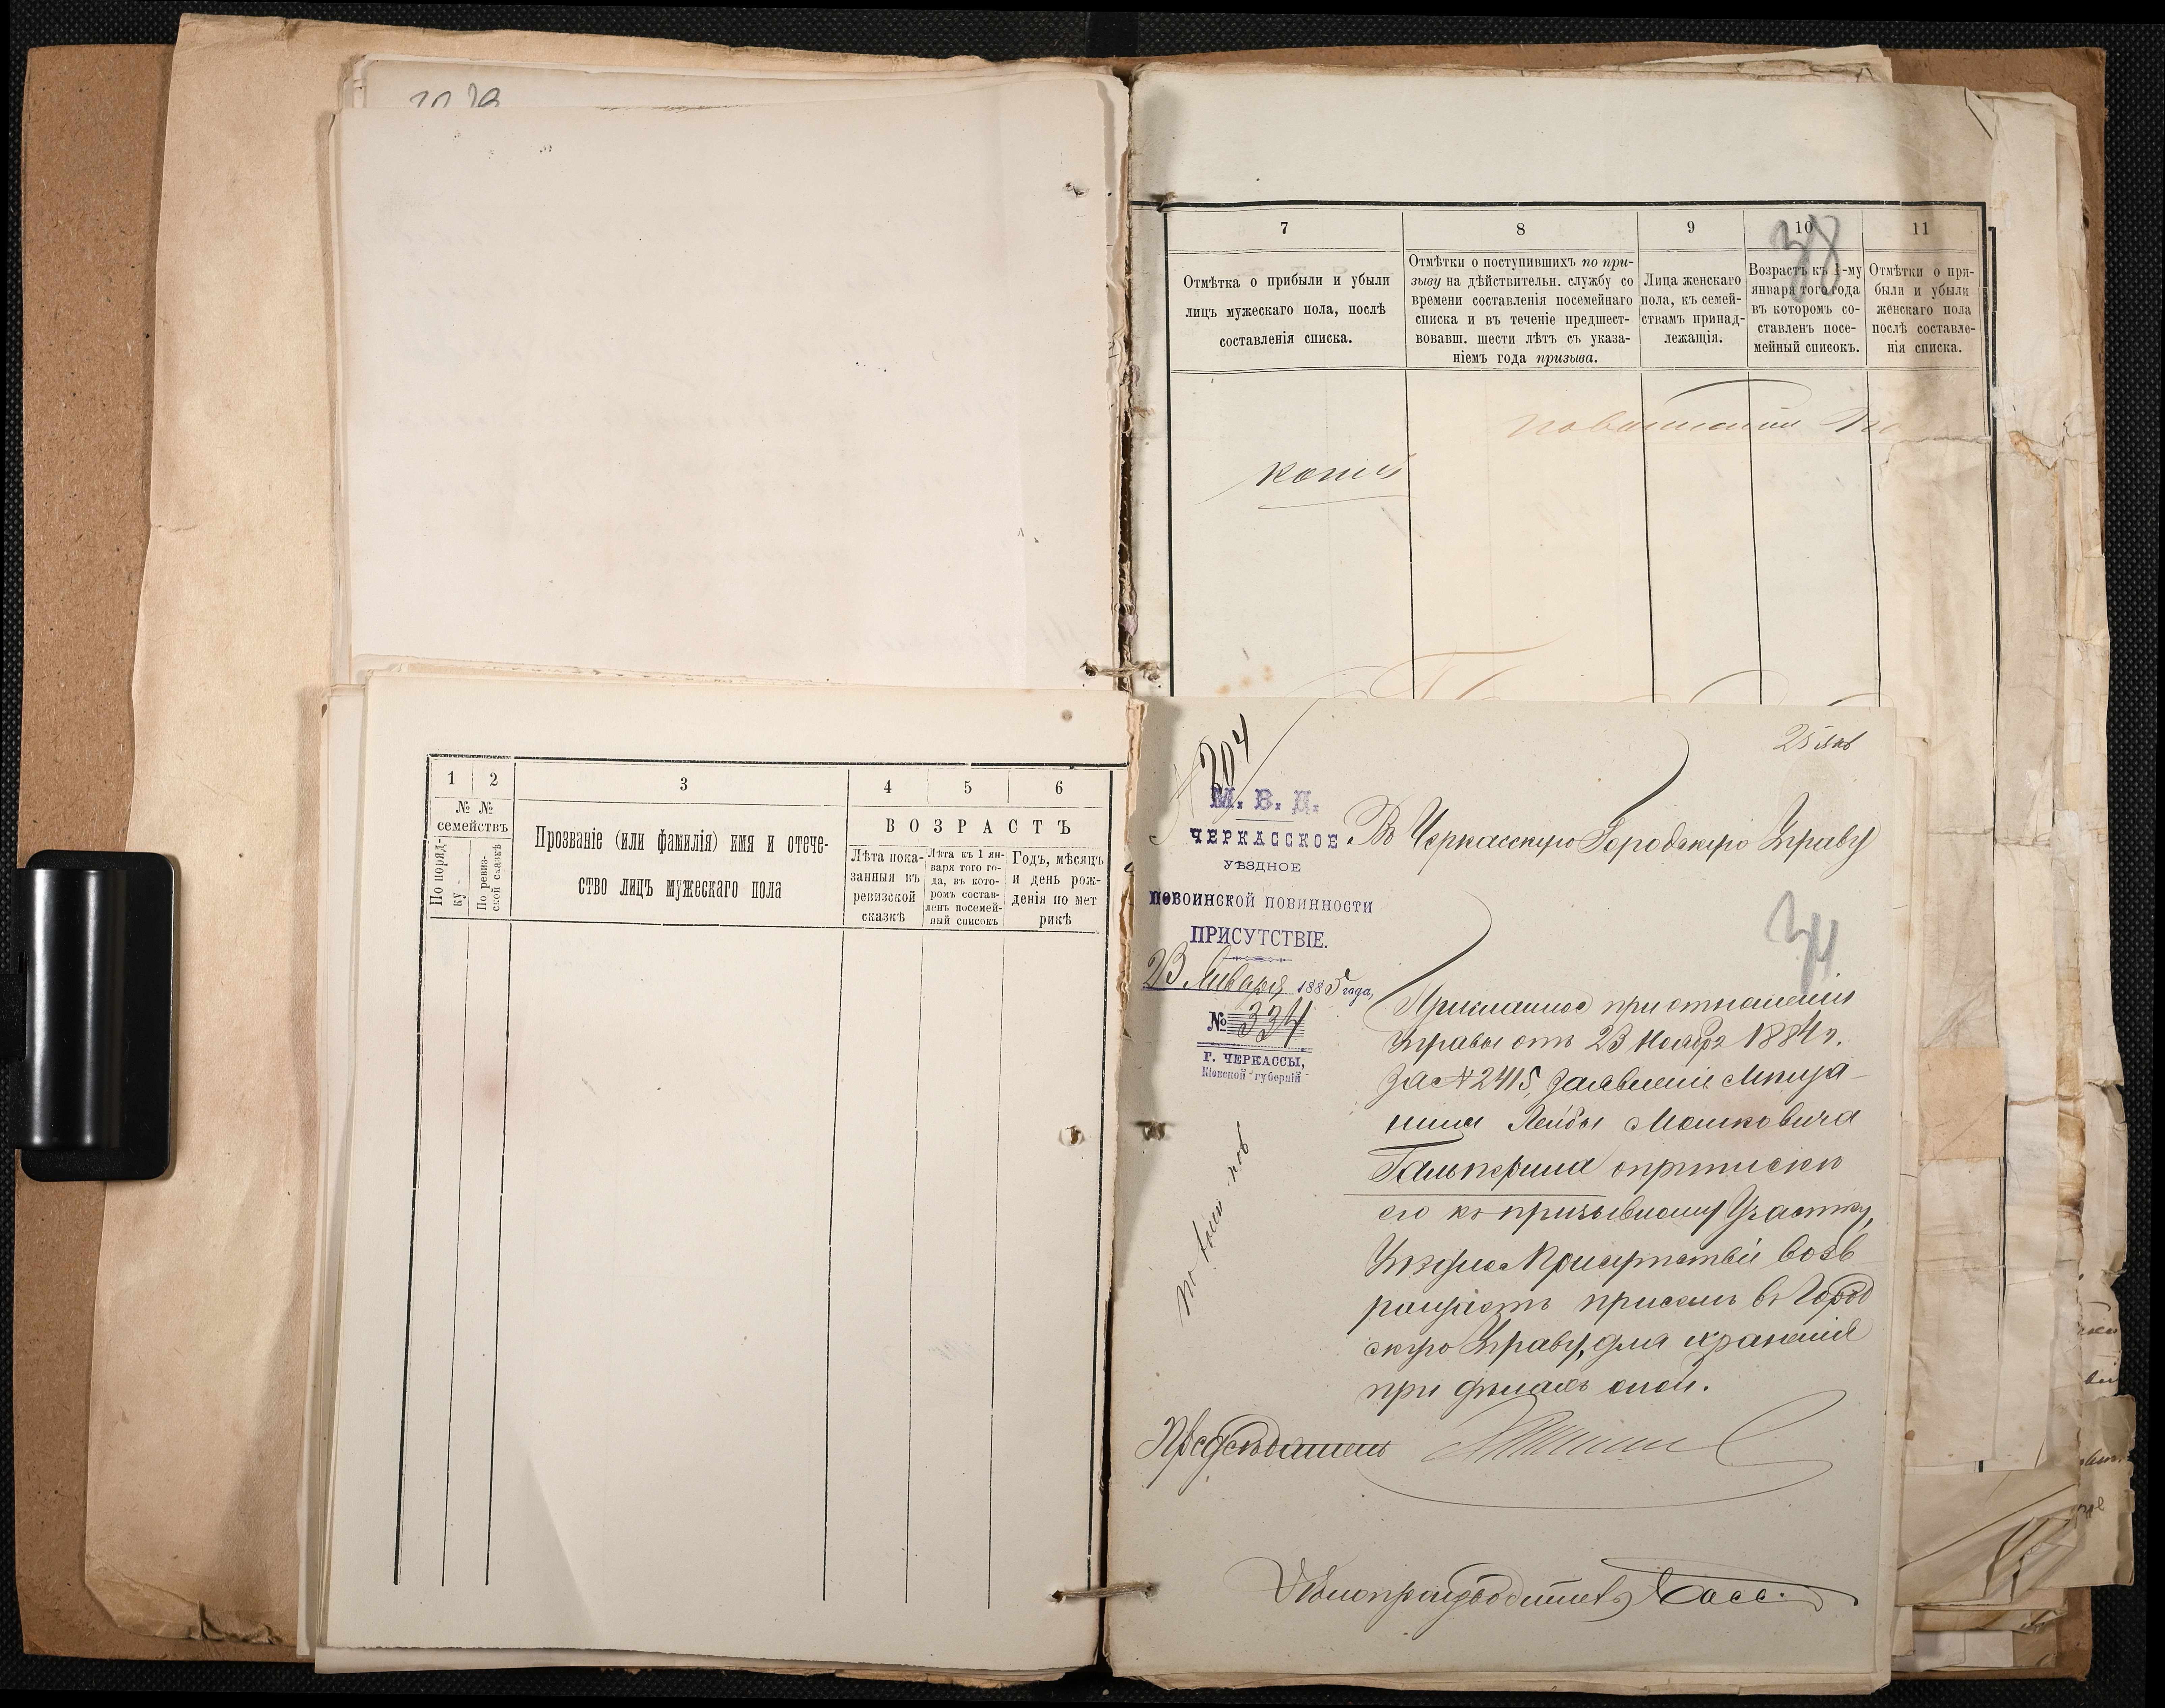 38
7
8
9
10
11
Отмѣтка о прибыли и убыли
лицъ мужескаго пола, послѣ
составленія списка.
Отмѣтки о поступившихъ по при-
зыву на дѣйствительн. службу со
времени составленія посемейнаго
списка и въ теченіе предшест-
вовавш. шести лѣтъ съ указа-
ніемъ года призыва.
Лица женскаго
пола, къ семей-
ствамъ принад-
лежащія.
Возрастъ къ 1-му
января того года
въ которомъ со-
ставленъ посе-
мейный списокъ.
Отмѣтки о при-
были и убыли
женскаго пола
послѣ составле-
нія списка.
1
2
3
4
5
6
№ №
семействъ
По поряд-
ку
По ревиз-
ской сказкѣ
Прозваніе (или фамилія) имя и отече-
ство лицъ мужескаго пола
ВОЗРАСТЪ
Лѣта пока-
занныя въ
ревизской
сказкѣ
Лѣта къ 1 ян-
варя того го-
да, въ кото-
ромъ состав-
ленъ посемей-
ный списокъ
Годъ, мѣсяцъ
и день рож-
денія по мет
рикѣ
304
25 Янв
М. В. Д.
ЧЕРКАССКОЕ
УѢЗДНОЕ
ПОВОИНСКОЙ ПОВИННОСТИ
ПРИСУТСТВІЕ.
23 Января 1885 года,
№ 334
Г. ЧЕРКАССЫ,
Кіевской губерніи
Въ Черкасскую Городскую Управу
34
Присланное при отношеніи
Управы отъ 23 Ноября 1884 г.
за № 2415, заявленіе мѣща-
нина Лейбы Мошковича
Гальперина о припискѣ
его къ призывному участку,
Уѣздное Присутствіе возв
ращаетъ при семъ въ Город
скую Управу, для храненія
при дѣлахъ оной.
Предсѣдатель
Дѣлопроизводитель